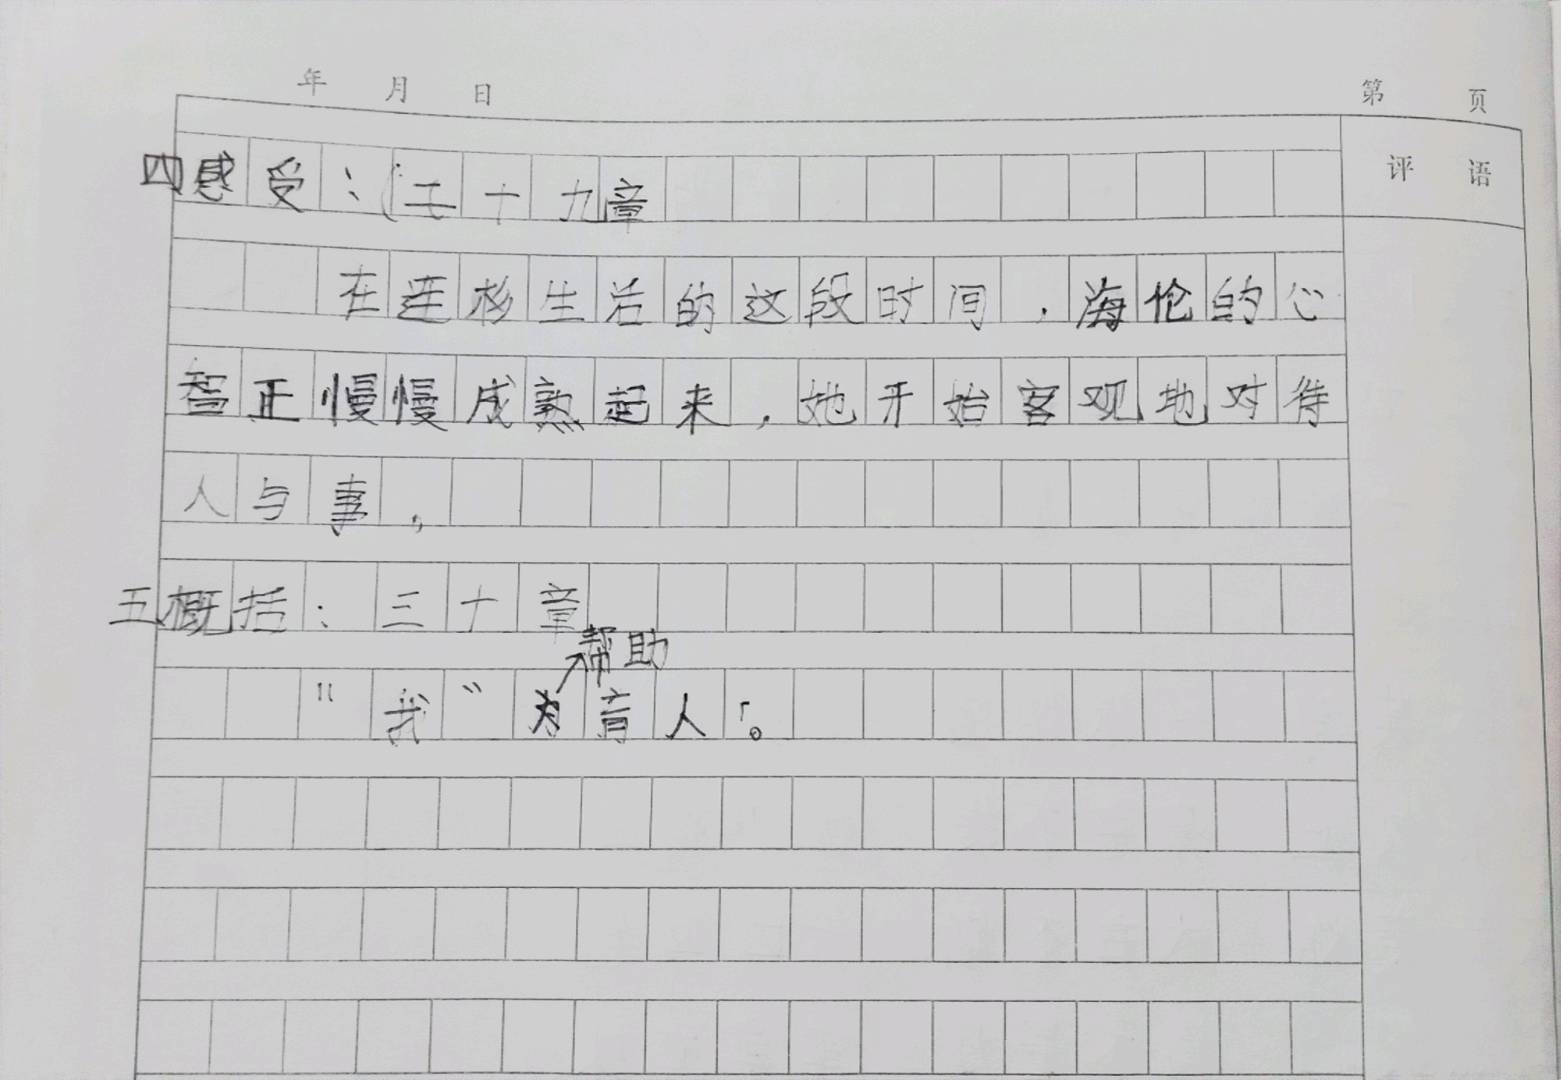 年 月 日
第 页
评 语
四感受：(二十九章
在连杉生活的这段时间，海伦的心
智正慢慢成熟起来，她开始客观地对待
人与事，
五概括：三十章
帮助
“我”为盲人。